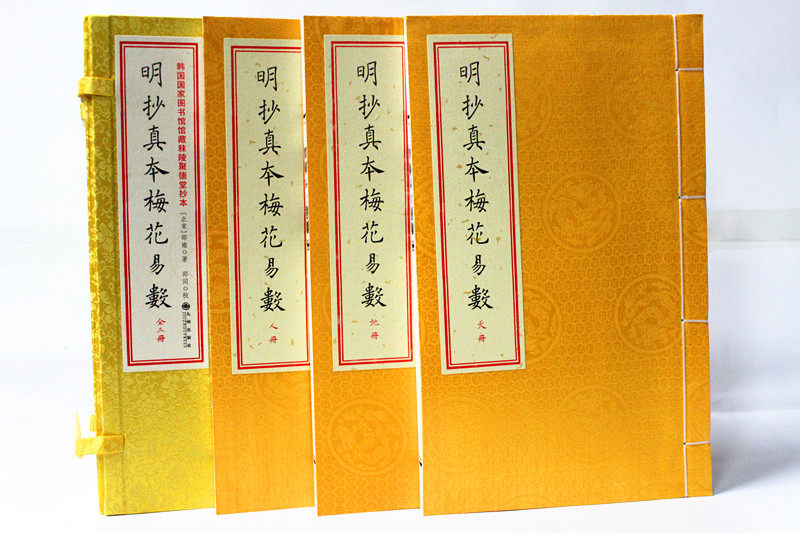 明抄真本梅花易數
韩国国家图书馆馆藏秣陵聚德堂抄本
[北宋]邵雍◎著
郑同◎校
全三册
九州出版社
明抄真本梅花易數
人册
明抄真本梅花易數
地册
明抄真本梅花易數
天册